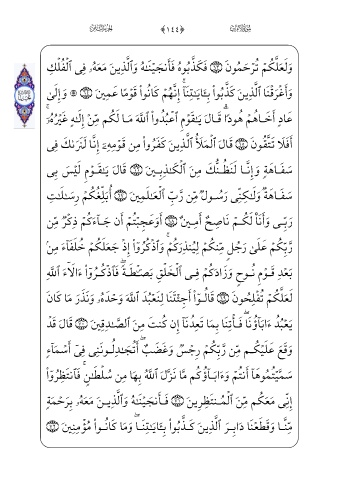 ﴿١٤٤﴾
وَلَعَلَّكُمْ تُرْحَمُونَ فَكَذَّبُوهُ فَأَنجَيْنَٰهُ وَالَّذِينَ مَعَهُۥ فِى الْفُلْكِ
وَأَغْرَقْنَا الَّذِينَ كَذَّبُوا۟ بِـَٔايَٰتِنَآ ۚ إِنَّهُمْ كَانُوا۟ قَوْمًا عَمِينَ ۞ وَإِلَىٰ
عَادٍ أَخَاهُمْ هُودًا ۗ قَالَ يَٰقَوْمِ اعْبُدُوا۟ اللَّهَ مَا لَكُم مِّنْ إِلَٰهٍ غَيْرُهُۥٓ ۚ
أَفَلَا تَتَّقُونَ قَالَ الْمَلَأُ الَّذِينَ كَفَرُوا۟ مِن قَوْمِهِۦٓ إِنَّا لَنَرَىٰكَ فِى
سَفَاهَةٍ وَإِنَّا لَنَظُنُّكَ مِنَ الْكَٰذِبِينَ قَالَ يَٰقَوْمِ لَيْسَ بِى
سَفَاهَةٌ وَلَٰكِنِّى رَسُولٌ مِّن رَّبِّ الْعَٰلَمِينَ أُبَلِّغُكُمْ رِسَٰلَٰتِ
رَبِّى وَأَنَا۠ لَكُمْ نَاصِحٌ أَمِينٌ أَوَعَجِبْتُمْ أَن جَآءَكُمْ ذِكْرٌ مِّن
رَّبِّكُمْ عَلَىٰ رَجُلٍ مِّنكُمْ لِيُنذِرَكُمْ ۚ وَاذْكُرُوٓا۟ إِذْ جَعَلَكُمْ خُلَفَآءَ مِنۢ
بَعْدِ قَوْمِ نُوحٍ وَزَادَكُمْ فِى الْخَلْقِ بَصْۜطَةً ۖ فَاذْكُرُوٓا۟ ءَالَآءَ اللَّهِ
لَعَلَّكُمْ تُفْلِحُونَ قَالُوٓا۟ أَجِئْتَنَا لِنَعْبُدَ اللَّهَ وَحْدَهُۥ وَنَذَرَ مَا كَانَ
يَعْبُدُ ءَابَآؤُنَا ۖ فَأْتِنَا بِمَا تَعِدُنَآ إِن كُنتَ مِنَ الصَّٰدِقِينَ قَالَ قَدْ
وَقَعَ عَلَيْكُم مِّن رَّبِّكُمْ رِجْسٌ وَغَضَبٌ ۖ أَتُجَٰدِلُونَنِى فِىٓ أَسْمَآءٍ
سَمَّيْتُمُوهَآ أَنتُمْ وَءَابَآؤُكُم مَّا نَزَّلَ اللَّهُ بِهَا مِن سُلْطَٰنٍ ۚ فَانتَظِرُوٓا۟
إِنِّى مَعَكُم مِّنَ الْمُنتَظِرِينَ فَأَنجَيْنَٰهُ وَالَّذِينَ مَعَهُۥ بِرَحْمَةٍ
مِّنَّا وَقَطَعْنَا دَابِرَ الَّذِينَ كَذَّبُوا۟ بِـَٔايَٰتِنَا ۖ وَمَا كَانُوا۟ مُؤْمِنِينَ